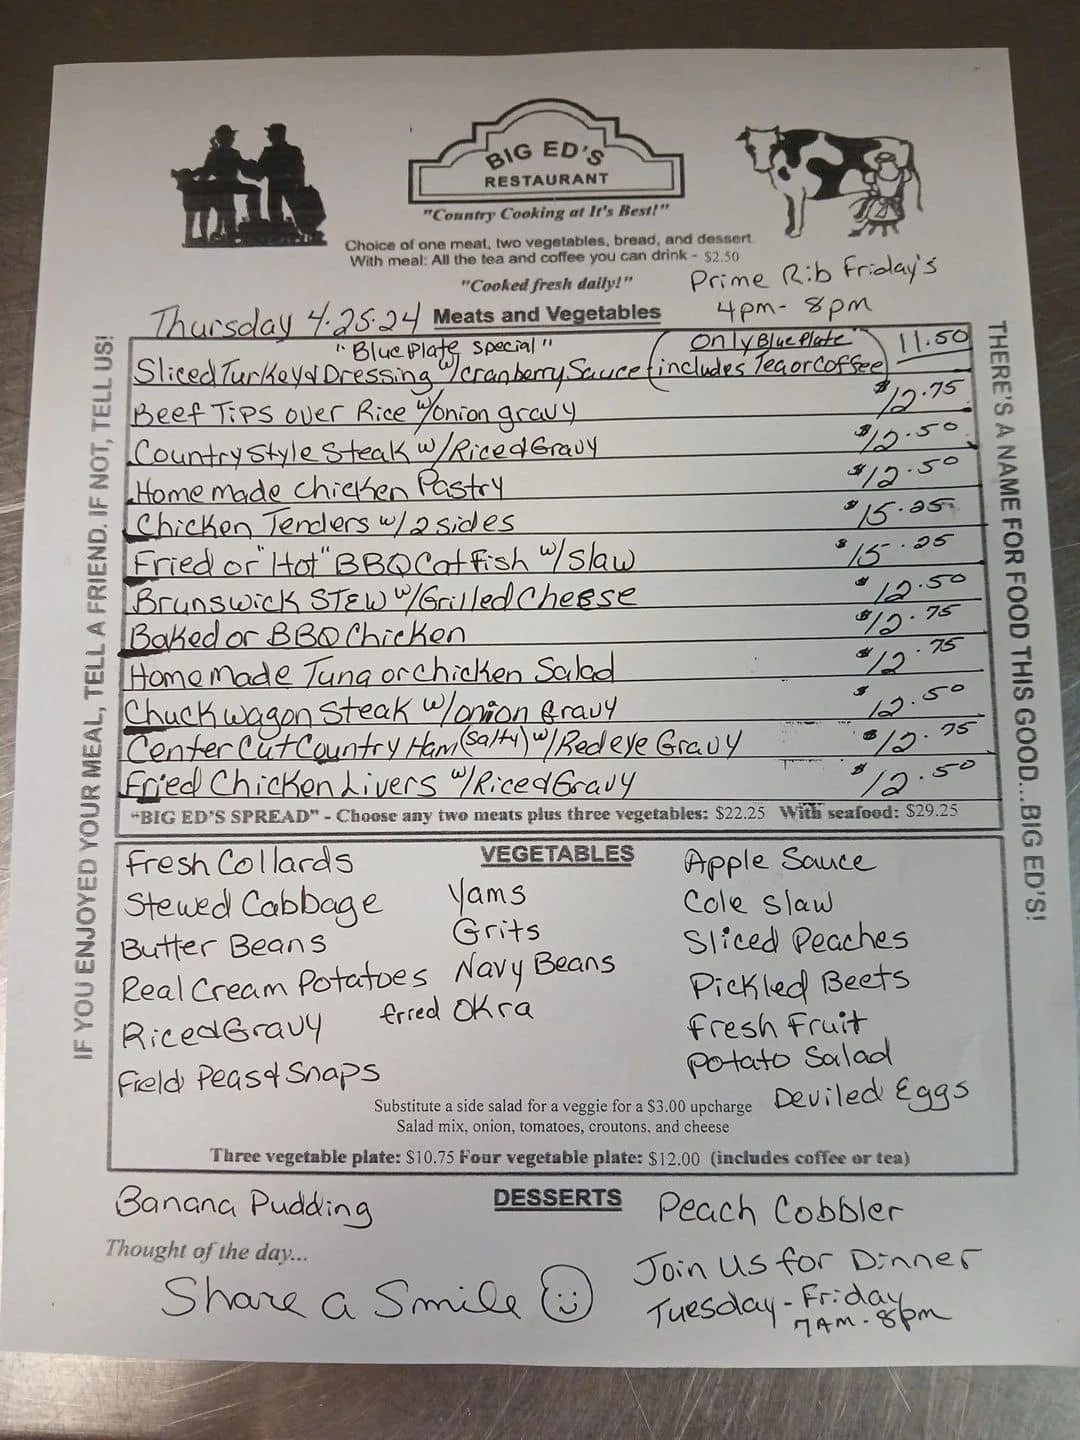 BIG ED'S
RESTAURANT
"Country Cooking at It's Best!"
Choice of one meat, two vegetables, bread, and dessert
With meal: All the tea and coffee you can drink - $2.50
"Cooked fresh daily!"
Prime Rib Friday's
4pm - 8pm
Thursday 4.25.24 Meats and Vegetables
"Blue Plate Special" Only Blue Plate 11.50
Sliced Turkey & Dressing w/cranberry Sauce (includes Tea or Coffee)
Beef Tips over Rice w/onion gravy $12.75
Country Style Steak w/Rice & Gravy $12.50
Homemade Chicken Pastry $12.50
Chicken Tenders w/2 sides $15.25
Fried or "Hot" BBQ Catfish w/Slaw $15.25
Brunswick STEW w/Grilled Cheese $12.50
Baked or BBQ Chicken $12.75
Homemade Tuna or Chicken Salad $12.75
Chuckwagon Steak w/onion Gravy $12.50
Center Cut Country Ham (Salty) w/Redeye Gravy $12.75
Fried Chicken Livers w/Rice & Gravy $12.50
"BIG ED'S SPREAD" - Choose any two meats plus three vegetables: $22.25 With seafood: $29.25
VEGETABLES
Fresh Collards
Stewed Cabbage
Butter Beans
Real Cream Potatoes
Rice & Gravy
Field Peas & Snaps
Yams
Grits
Navy Beans
fried Okra
Apple Sauce
Cole Slaw
Sliced Peaches
Pickled Beets
Fresh Fruit
Potato Salad
Deviled Eggs
Substitute a side salad for a veggie for a $3.00 upcharge
Salad mix, onion, tomatoes, croutons. and cheese
Three vegetable plate: $10.75 Four vegetable plate: $12.00 (includes coffee or tea)
DESSERTS
Banana Pudding
Peach Cobbler
Thought of the day...
Share a Smile
Join Us for Dinner
Tuesday - Friday
7AM - 8pm
IF YOU ENJOYED YOUR MEAL, TELL A FRIEND. IF NOT, TELL US!
THERE'S A NAME FOR FOOD THIS GOOD...BIG ED'S!